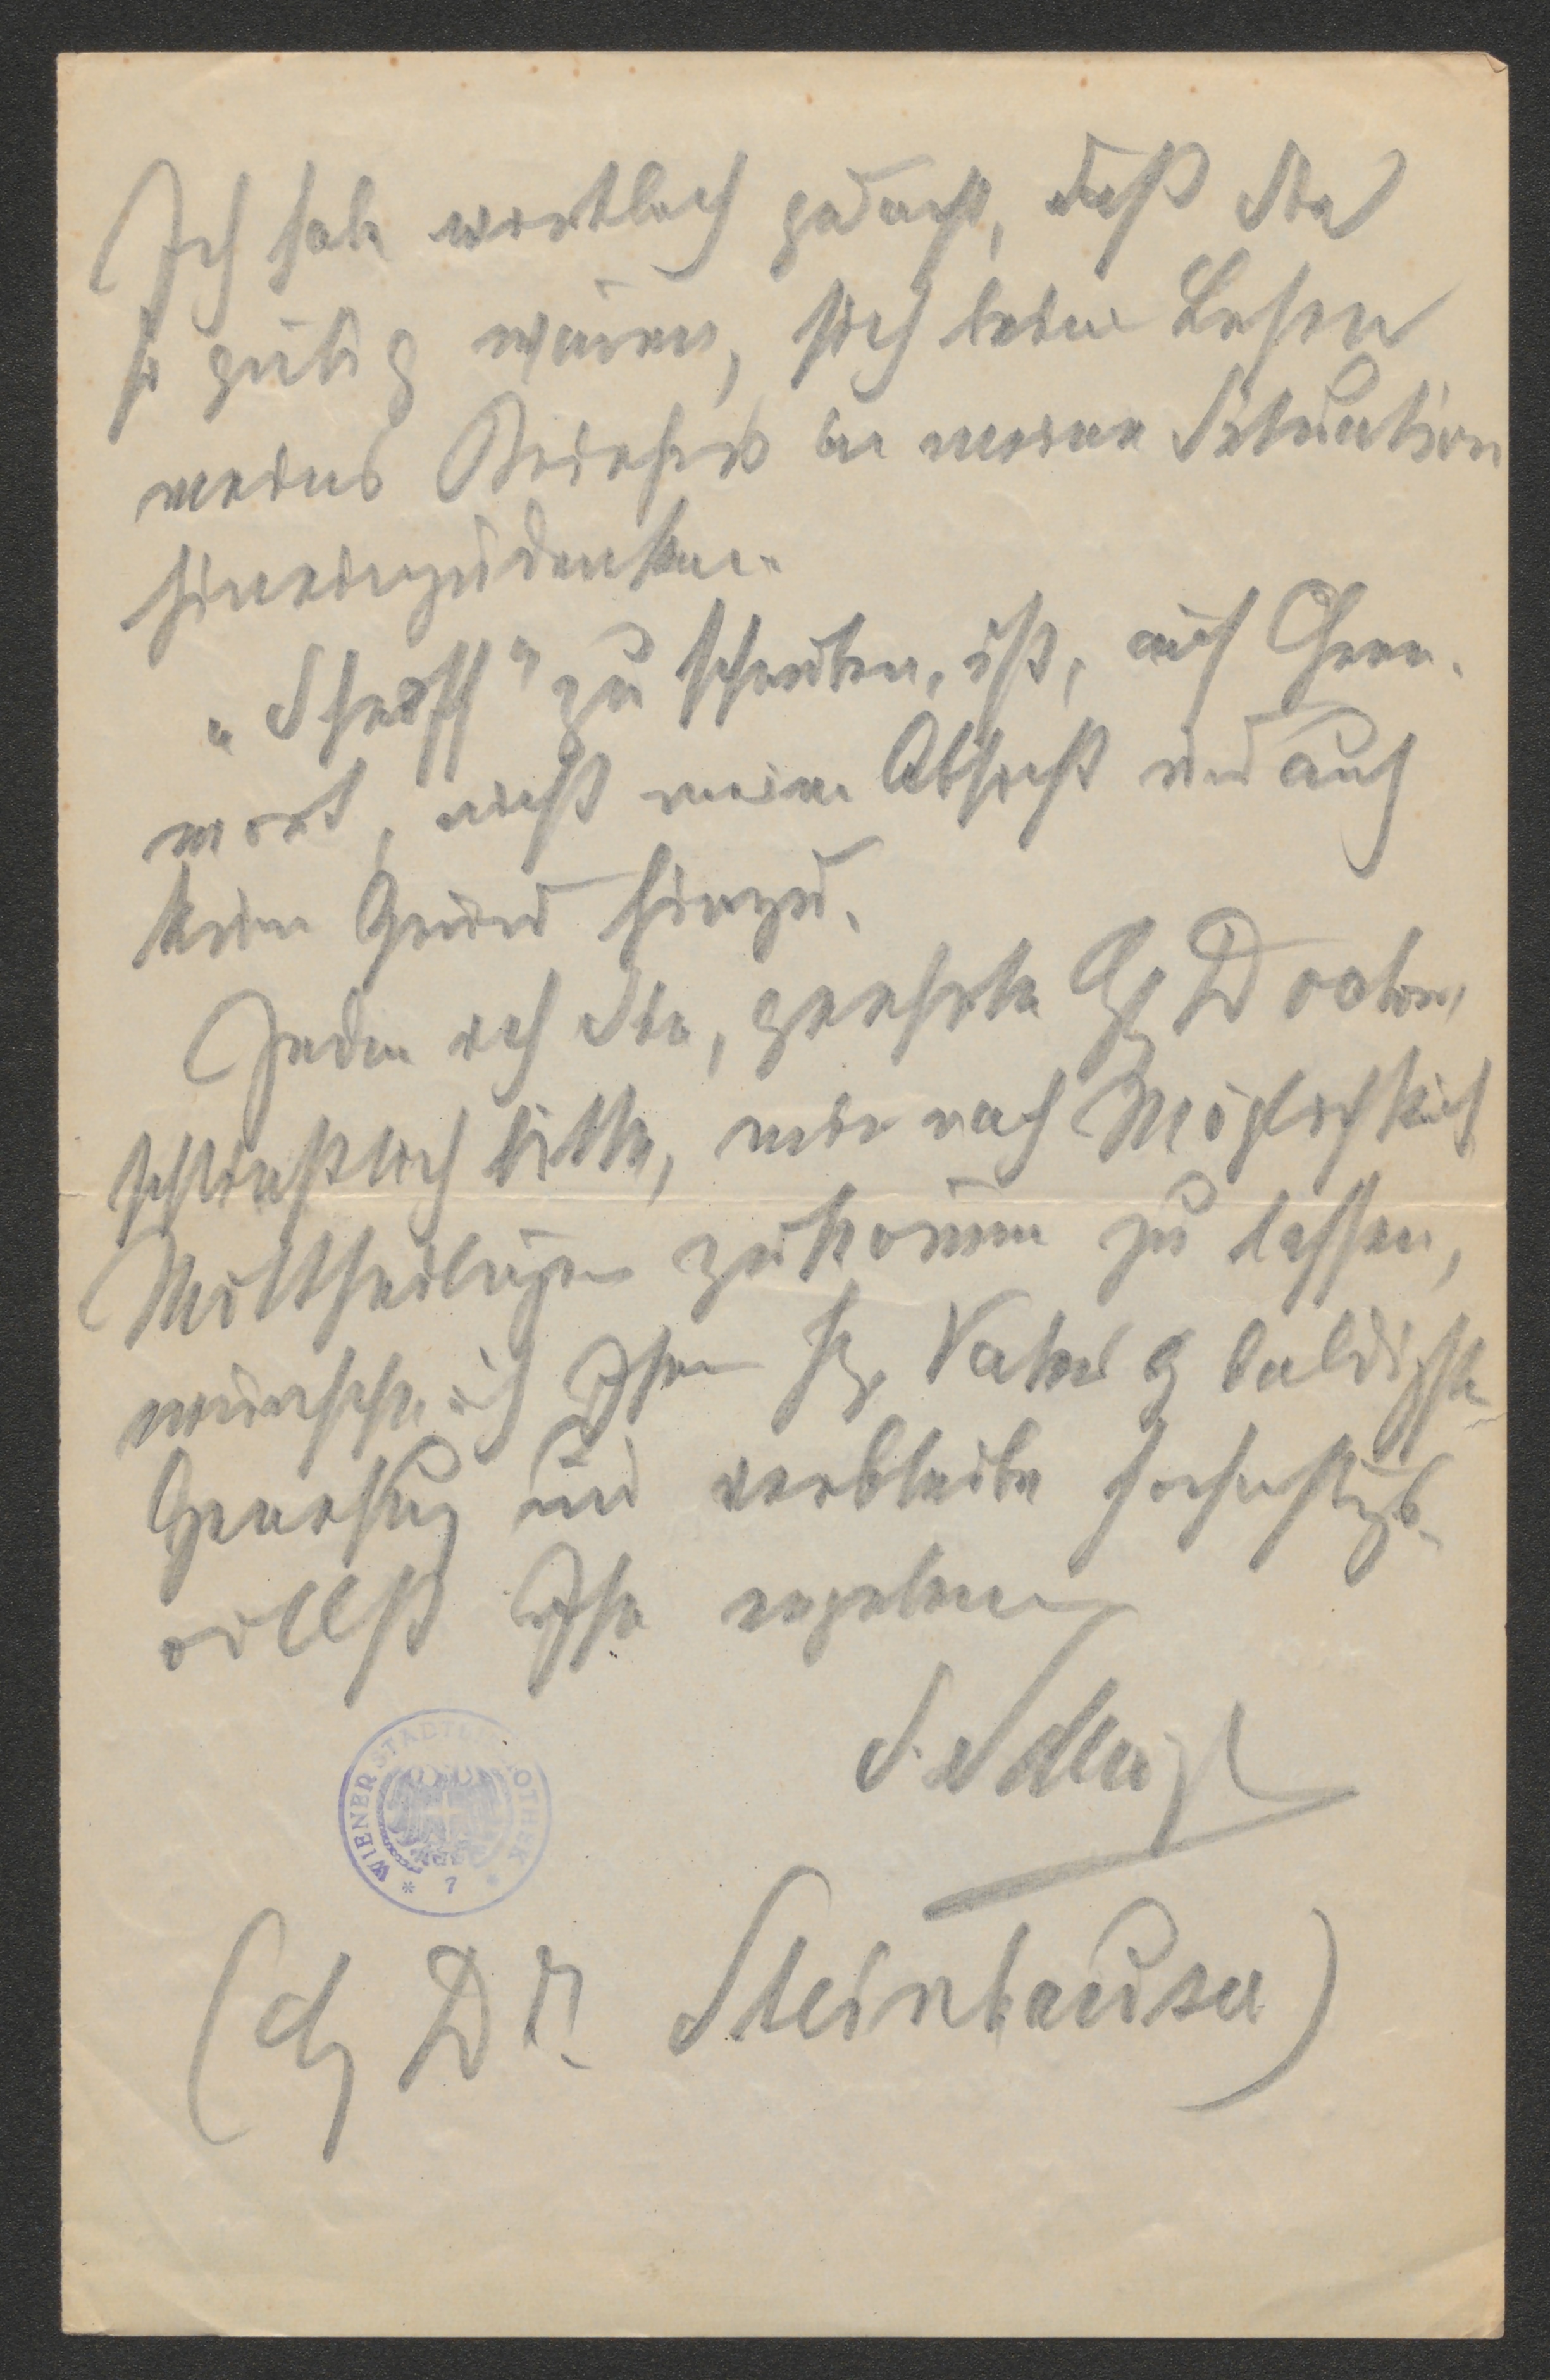 Ich habe wirklich gedacht, daß Sie
so gütig wären, sich beim Lesen
meines Briefes in meine Situation
hineinzudenken.
„Scharff" zu schreiben, ist, auf Ehren-
wort, nicht meine Absicht und auch
kein Grund hiezu.
Indem ich Sie, geehrter H Doctor,
schließlich bitte, mir nach Möglichkeit
Mittheilungen zukommen zu lassen,
wünsche ich Ihrem H. Vater baldigste
Genesung und verbleibe hochachtungs-
vollst Ihr ergebener
WIENER STADTBIBLIOTHEK
* 7 *
(H Dr. Steinhauser)